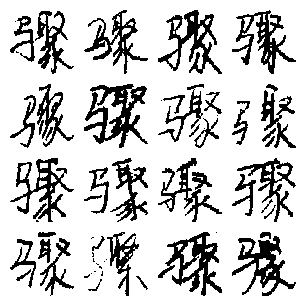 骤骤骤骤
骤骤骤骤
骤骤骤骤
骤骤骤骤